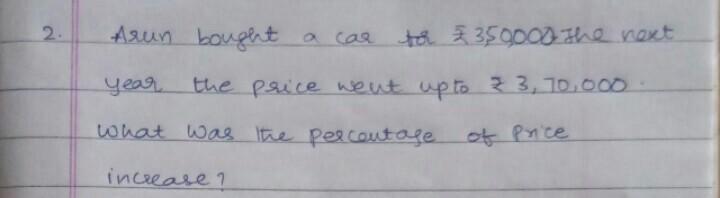 2. Arun bought a car for ₹ 350000 The next
year the price went upto ₹ 3,70,000.
What was the percentage of Price
increase?